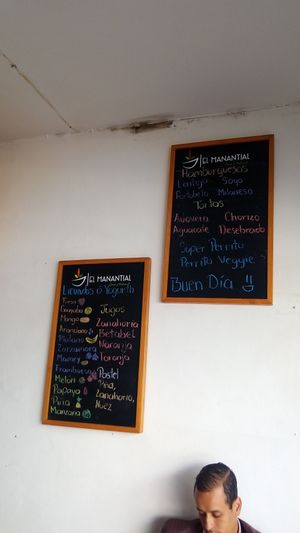 EL MANANTIAL
Hamburguesas
Lenteja Soya
Portobello Milanesa
Tortas
Aguacate Deshebrado
Chorizo
Super Perrito
Perrito Veggie
Buen Día
EL MANANTIAL
Licuados ó Yogurth
Fresa
Guayaba Jugos
Mango Zanahoria
Arandano Betabel
Platano Naranja
Zarzamora Toronja
Mamey
Frambuesa Pastel
Melon Piña,
Papaya Zanahoria,
Piña Nuez
Manzana